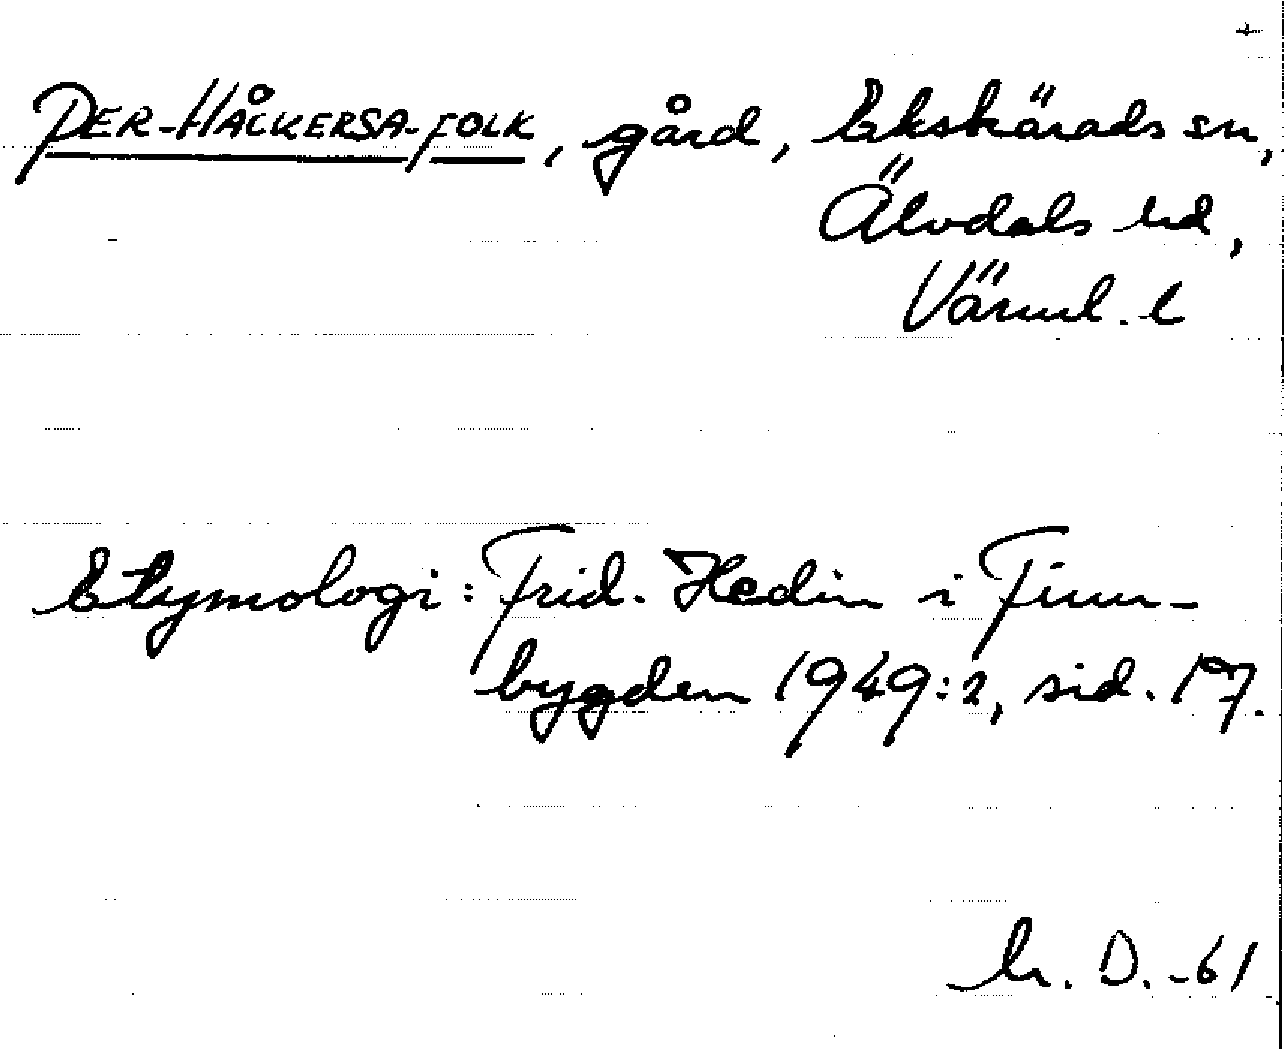 PER-HÅCKERSA-FOLK, gård, Ekshärads sn,
Älvdals hd,
Värml. l
Etymologi: Frid. Hedin i Finn-
bygden 1949:2, sid. 17.
D. -61